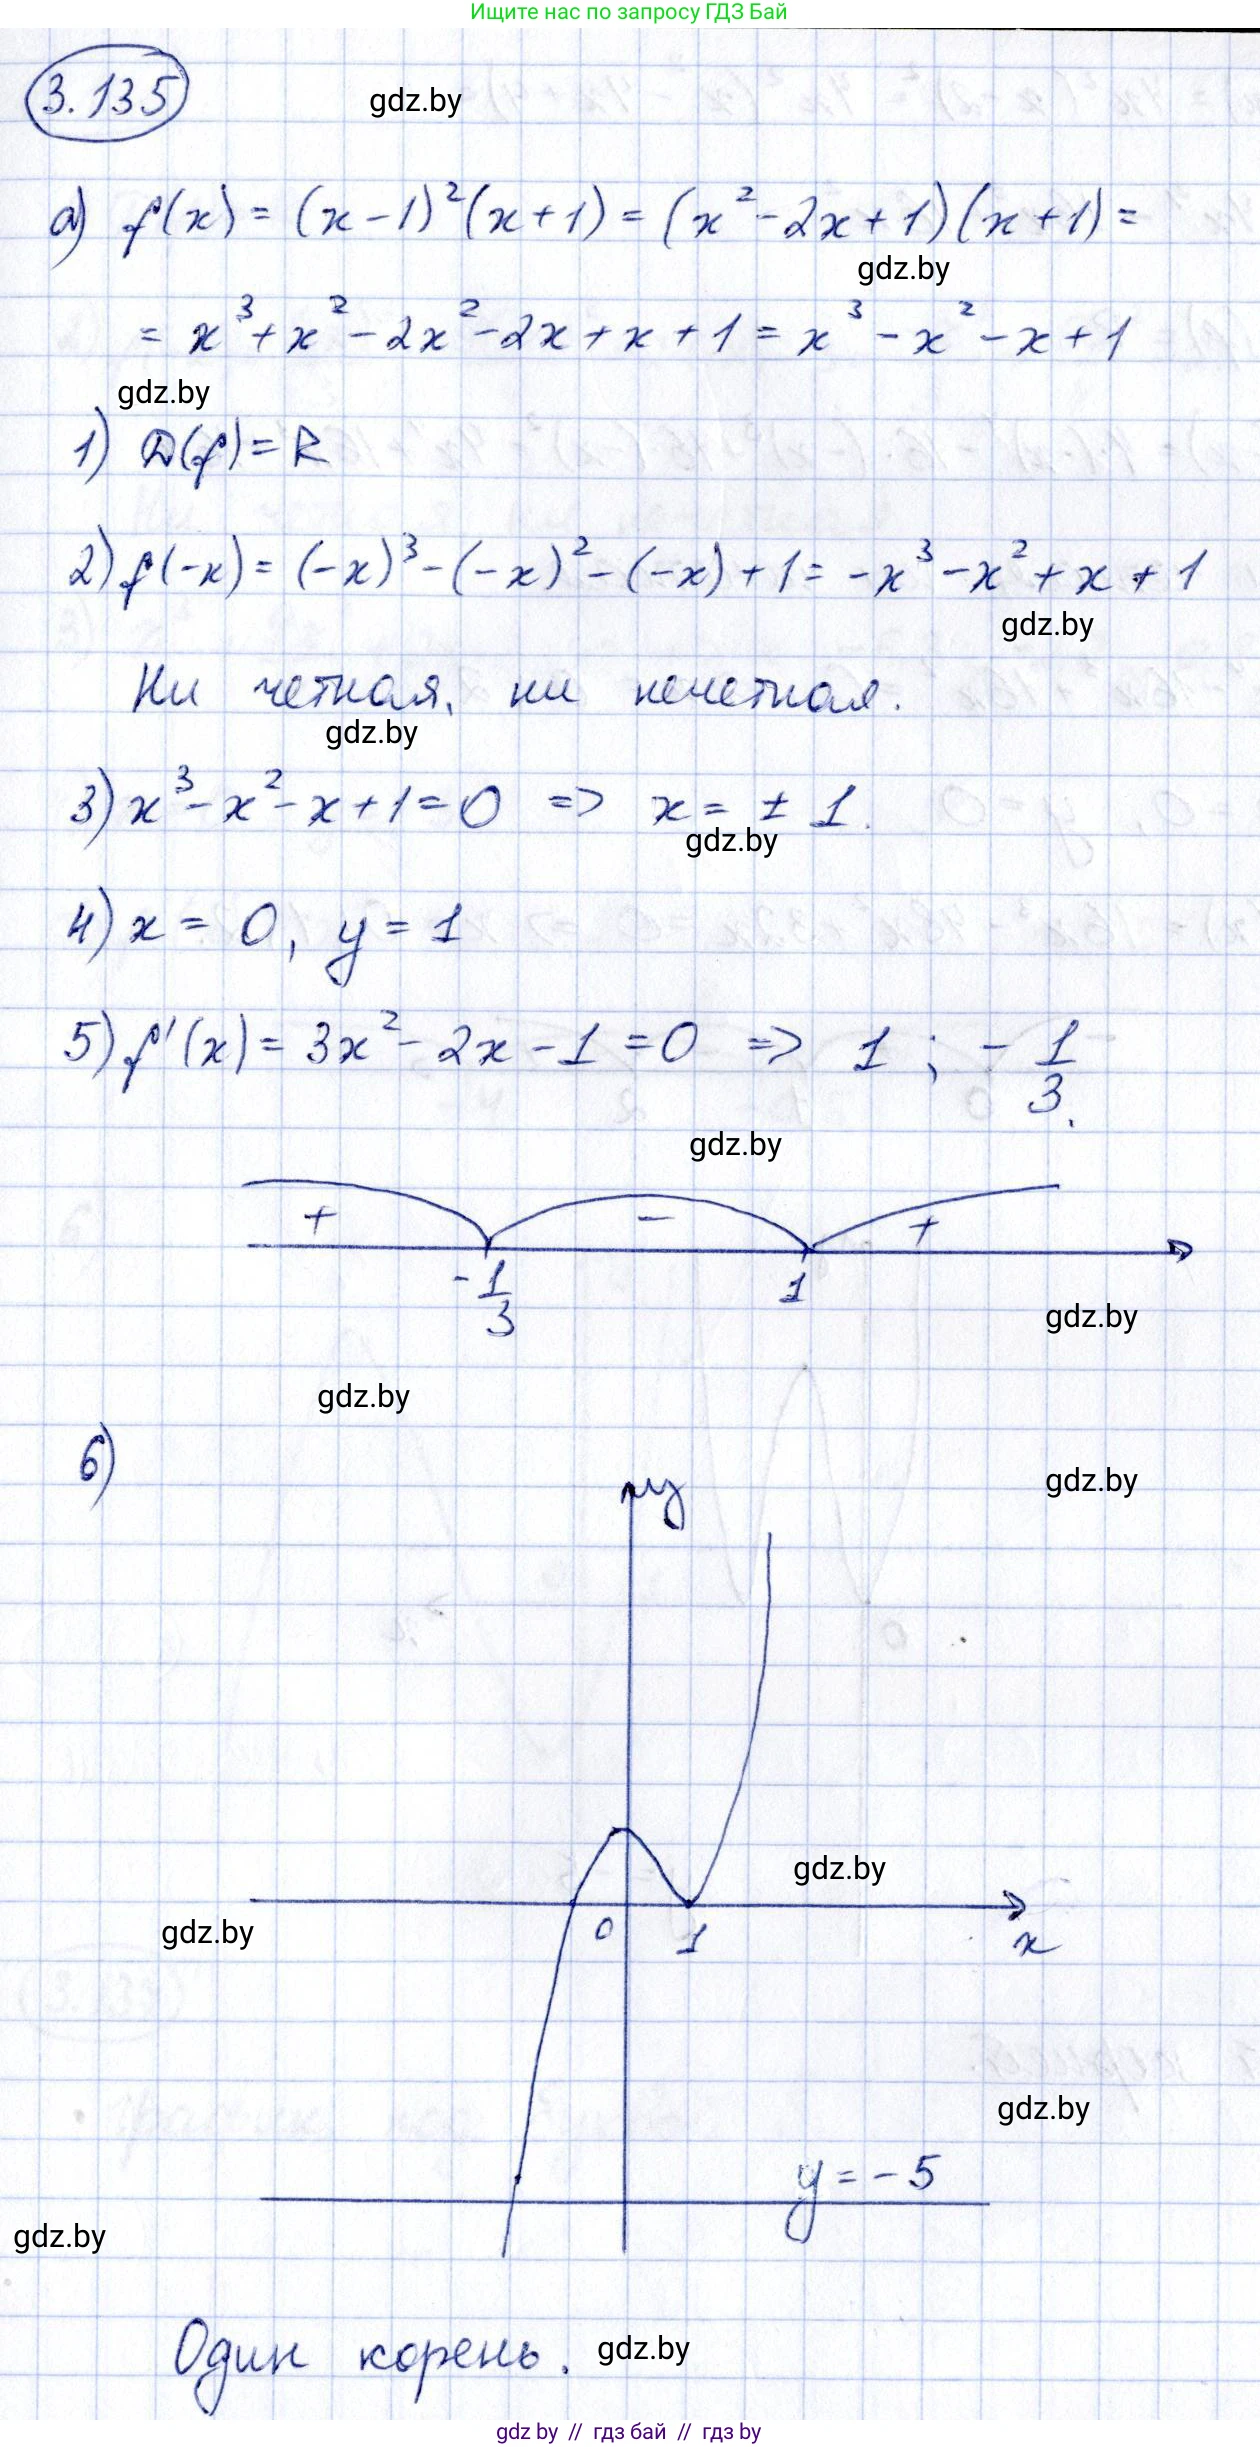 Ищите нас по запросу ГДЗ Бай
3.135
gdz.by
а) f(x) = (x-1)²(x+1) = (x²-2x+1)(x+1) =
gdz.by
= x³+x²-2x²-2x+x+1 = x³-x²-x+1
gdz.by
1) D(f) = R
2) f(-x) = (-x)³-(-x)²-(-x)+1 = -x³-x²+x+1
gdz.by
Ни четная, ни нечетная.
gdz.by
3) x³-x²-x+1=0 => x = ± 1.
gdz.by
4) x = 0, y = 1
5) f'(x) = 3x²-2x-1 = 0 => 1 ; -1/3.
gdz.by
+ - +
-1/3 1
gdz.by
gdz.by
6)
gdz.by
y
gdz.by
gdz.by
0 1 x
gdz.by
y = -5
gdz.by
Один корень.
gdz.by
gdz by // гдз бай // гдз by